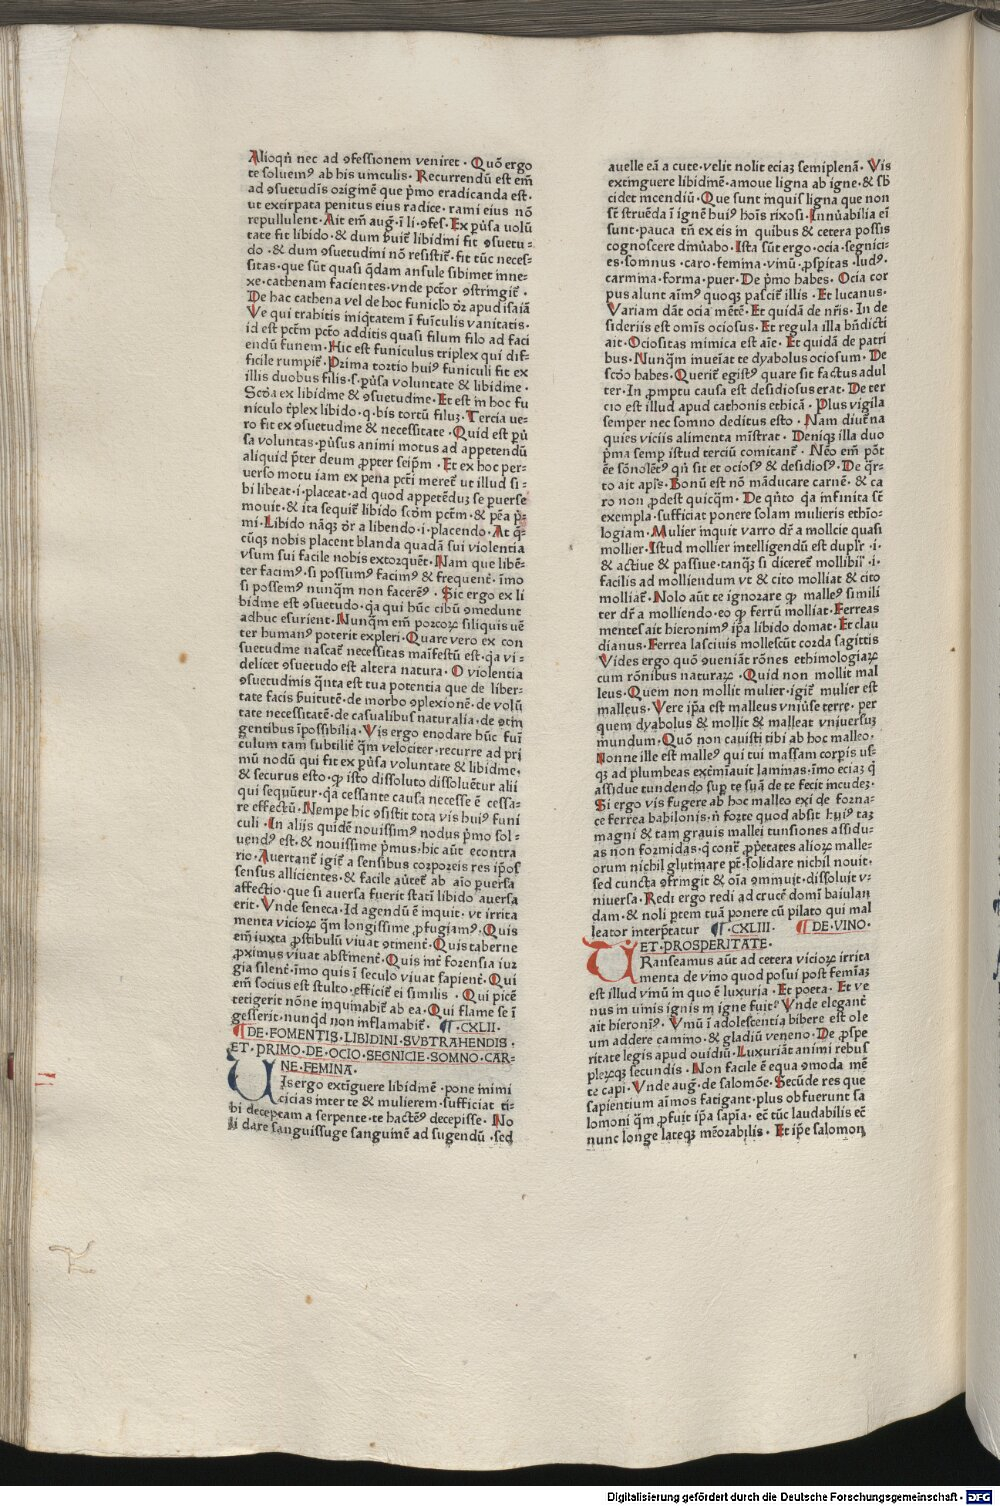 Alioqñ nec ad ꝯfessionem veniret · Quō ergo
te soluemꝰ ab his uinculis · Recurrendū est em̄
ad ꝯsuetudīs originē que pͥmo eradicanda est ·
ut extirpata penitus eius radice · rami eius nō
repullulent · Ait em̄ aug · ī li · ꝯfes · Ex pūsa uolū
tate fit libido · & dum ẜuit̄ libidini fit ꝯsuetu⸗
do · & dum ꝯsuetudini nō resistit̄ · fit tūc neces⸗
sitas · que sūt quasi q̄dam ansule sibimet inne⸗
xe · cathenam facientes · vnde pctōr ꝯstringit̄ ·
De hac cathena vel de hoc funiclo d̄r apud isaiā
Ve qui trahitis iniq̇tatem ī fuīculis vanitatis ·
id est pctm̄ pctō additis quasi filum filo ad faci
endū funem · Hic est funiculus triplex qui dif⸗
ficile rumpit̄ · Prima tortio huiꝰ funiculi fit ex
illis duobus filis · s · pūsa voluntate & libidine ·
Scd̄a ex libidine & ꝯsuetudine · Et est in hoc fu
niculo tͥplex libido · q · bis tortū filuꝫ · Tercia ue⸗
ro fit ex ꝯsuetudine & necessitate · Quid est pū
sa voluntas · pūsus animi motus ad appetendū
aliquid pͥter deum ꝓpter seip̄m · Et ex hoc per⸗
uerso motu iam ex pena pctī meret̄ ut illud si⸗
bi libeat · i · placeat · ad quod appetēduꝫ se puerse
mouit · & ita sequit̄ libido scd̄m pctm̄ · & pēa pͥ⸗
mi · Libido nāqꝫ d̄r a libendo · i · placendo · At q̄⸗
cūqꝫ nobis placent blanda quadā sui violentia
vsum sui facile nobis extorquēt · Nam que libē⸗
ter facimꝰ · si possumꝰ facimꝰ & frequent̄ · īmo
si possemꝰ nunqm̄ non facerēꝰ · Sic ergo ex li
bidine est ꝯsuetudo · q̇a qui hūc cibū ꝯmedunt
adhuc esurient · Nunqm̄ em̄ porcoꝝ siliquis uē
ter humanꝰ poterit expleri · Quare vero ex con
suetudine nascat̄ necessitas maīfestū est · q̇a vi⸗
delicet ꝯsuetudo est altera natura · O violentia
ꝯsuetudinis q̄nta est tua potentia que de liber⸗
tate facis ẜuitutē · de morbo ꝯplexionē · de volū
tate necessitatē · de casualibus naturalia · de ꝯtin
gentibus īpossibilia · Vis ergo enodare hūc fuī
culum tam subtilit̄ qm̄ velociter · recurre ad pri
mū nodū qui fit ex pūsa voluntate & libidine ·
& securus esto · ꝙ isto dissoluto dissoluētur alii
qui sequūtur · q̇a cessante causa necesse ē cessa⸗
re effectū · Nempe hic ꝯsistit tota vis huiꝰ funi
culi · In alijs quidē nouissimꝰ nodus pͥmo sol⸗
uendꝰ est · & nouissime pͥmus · hic aūt econtra
rio · Auertant̄ igit̄ a sensibus corporeis res ip̄os
sensus allicientes · & facile auīet̄ ab aīo puersa
affectio · que si auersa fuerit statī libido auersa
erit · Vnde seneca · Id agendū ē inquit · vt irrita
menta vicioꝝ qm̄ longissime ꝓfugiamꝰ · Quis
em̄ iuxta ꝓstibulū viuat ꝯtinent̄ · Quis taberne
ꝓximus viuat abstinent̄ · Quis int̄ forensia iur
gia silent̄ · īmo quis ī seculo viuat sapient̄ · Qui
em̄ socius est stulto · efficit̄ ei similis · Qui picē
tetigerit nōne inquinabit̄ ab ea · Qui flame se ī
gesserit · nunq̇d non inflamabit̄ · ¶ · CXLII ·
¶ DE · FOMENTIS · LIBIDINI · SVBTRAHENDIS ·
ET · PRIMO · DE · OCIO · SEGNICIE · SOMNO · CAR⸗
NE · FEMINA ·
UIs ergo extīguere libidinē · pone inimi
cicias inter te & mulierem · sufficiat ti⸗
bi deceptam a serpente · te hactenꝰ decepisse · No
li dare sanguissuge sanguinē ad sugendū · sed
auelle eā a cute · velit nolit eciaꝫ semiplenā · Vis
extinguere libidinē · amoue ligna ab igne · & sb̄
cidet incendiū · Que sunt inquis ligna que non
sēt struēda ī ignē huiꝰ hoīs rixosi · Innūabilia eī
sunt · pauca tn̄ ex eis in quibus & cetera possis
cognoscere dinūabo · Ista sūt ergo · ocia · segnici⸗
es · somnus · caro · femina · vinū · ꝓspītas · ludꝰ ·
carmina · forma · puer · De pͥmo habes · Ocia cor
pus alunt aīmꝰ quoqꝫ pascit̄ illis · Et lucanus ·
Variam dāt ocia mētē · Et quidā de nr̄is · In de
sideriis est omīs ociosus · Et regula illa bn̄dicti
ait · Ociositas inimica est aīe · Et quidā de patri
bus · Nunqm̄ inueīat te dyabolus ociosum · De
scd̄o habes · Querit̄ egistꝰ quare sit factus adul
ter · In ꝓmptu causa est desidiosus erat · De ter
cio est illud apud cathonis ethicā · Plus vigila
semper nec somno deditus esto · Nam diut̄na
quies viciis alimenta mīstrat · Deniqꝫ illa duo
pͥma semp istud terciū comitant̄ · Nēo em̄ pōt
ēe sōnolētꝰ qn̄ sit et ociosꝰ & desidiosꝰ · De q̄r⸗
to ait ap̄ls · Bonū est nō māducare carnē · & ca
ro non ꝓdest quicqm̄ · De qn̄to q̇a infinita sēt
exempla · sufficiat ponere solam mulieris ethīo⸗
logiam · Mulier inquit varro dr̄ a mollcie quasi
mollier · Istud mollier intelligendū est duplr̄ · i ·
& actiue & passiue · tanqꝫ si diceret̄ mollibil̄ · i ·
facilis ad molliendum vt & cito molliat & cito
molliat̄ · Nolo aūt te ignorare ꝙ malleꝰ simili
ter dr̄ a molliendo · eo ꝙ ferrū molliat · Ferreas
mentes ait hieronimꝰ ip̄a libido domat · Et clau
dianus · Ferrea lasciuis mollescūt corda sagittis
Vides ergo quō ꝯueniāt rōnes ethimologiaꝝ
cum rōnibus naturaꝝ · Quid non mollit mal
leus · Quem non mollit mulier · igit̄ mulier est
malleus · Vere ip̄a est malleus vniūse terre · per
quem dyabolus & mollit & malleat vniuersuꝫ
mundum · Quō non cauisti tibi ab hoc malleo ·
Nonne ille est malleꝰ qui tui massam corpīs us⸗
qꝫ ad plumbeas extīnīauit laminas · īmo eciaꝫ q̄
assidue tundendo suꝑ te suā de te fecit incudeꝫ ·
Si ergo vis fugere ab hoc malleo exi de forna⸗
ce ferrea babilonis · n̄ forte quod absit huiꝰ taꝫ
magni & tam grauis mallei tunsiones assidu⸗
as non formidas · q̇ cont̄ ꝓp̄etates alioꝝ malle⸗
orum nichil glutinare pt̄ · solidare nichil nouit ·
sed cuncta ꝯfringit & oīa ꝯminuit · dissoluit v⸗
niuersa · Redi ergo redi ad crucē domī baiulan
dam · & noli ptem tuā ponere cū pilato qui mal
leator interp̄tatur ¶ · CXLIII · ¶ DE · VINO ·
ET · PROSPERITATE ·
TRanseamus aūt ad cetera vicioꝝ irrita
menta de vino quod posui post femīaꝫ
est illud vinū in quo ē luxuria · Et poeta · Et ve
nus in uinis ignis in igne fuit · Vnde elegant̄
ait hieronīꝰ · Vinū ī adolescentia bibere est ole
um addere camino · & gladiū veneno · De ꝓspe
ritate legis apud ouidiū · Luxuriāt animi rebus
plerqꝫ secundis · Non facile ē equa ꝯmoda mē
te capi · Vnde aug · de salomōe · Secūde res que
sapientium aīmos fatigant · plus obfuerunt sa
lomoni qm̄ ꝓfuit ip̄a sapīa · ec̄ tūc laudabilis ec̄
nunc longe lateqꝫ mēorabilis · Et ip̄e salomon
Digitalisierung gefördert durch die Deutsche Forschungsgemeinschaft - DFG